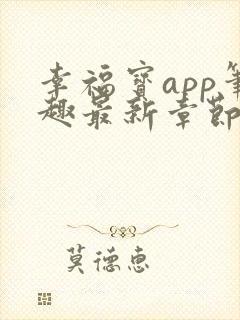 幸福宝app笔
趣最新章节
莫德惠